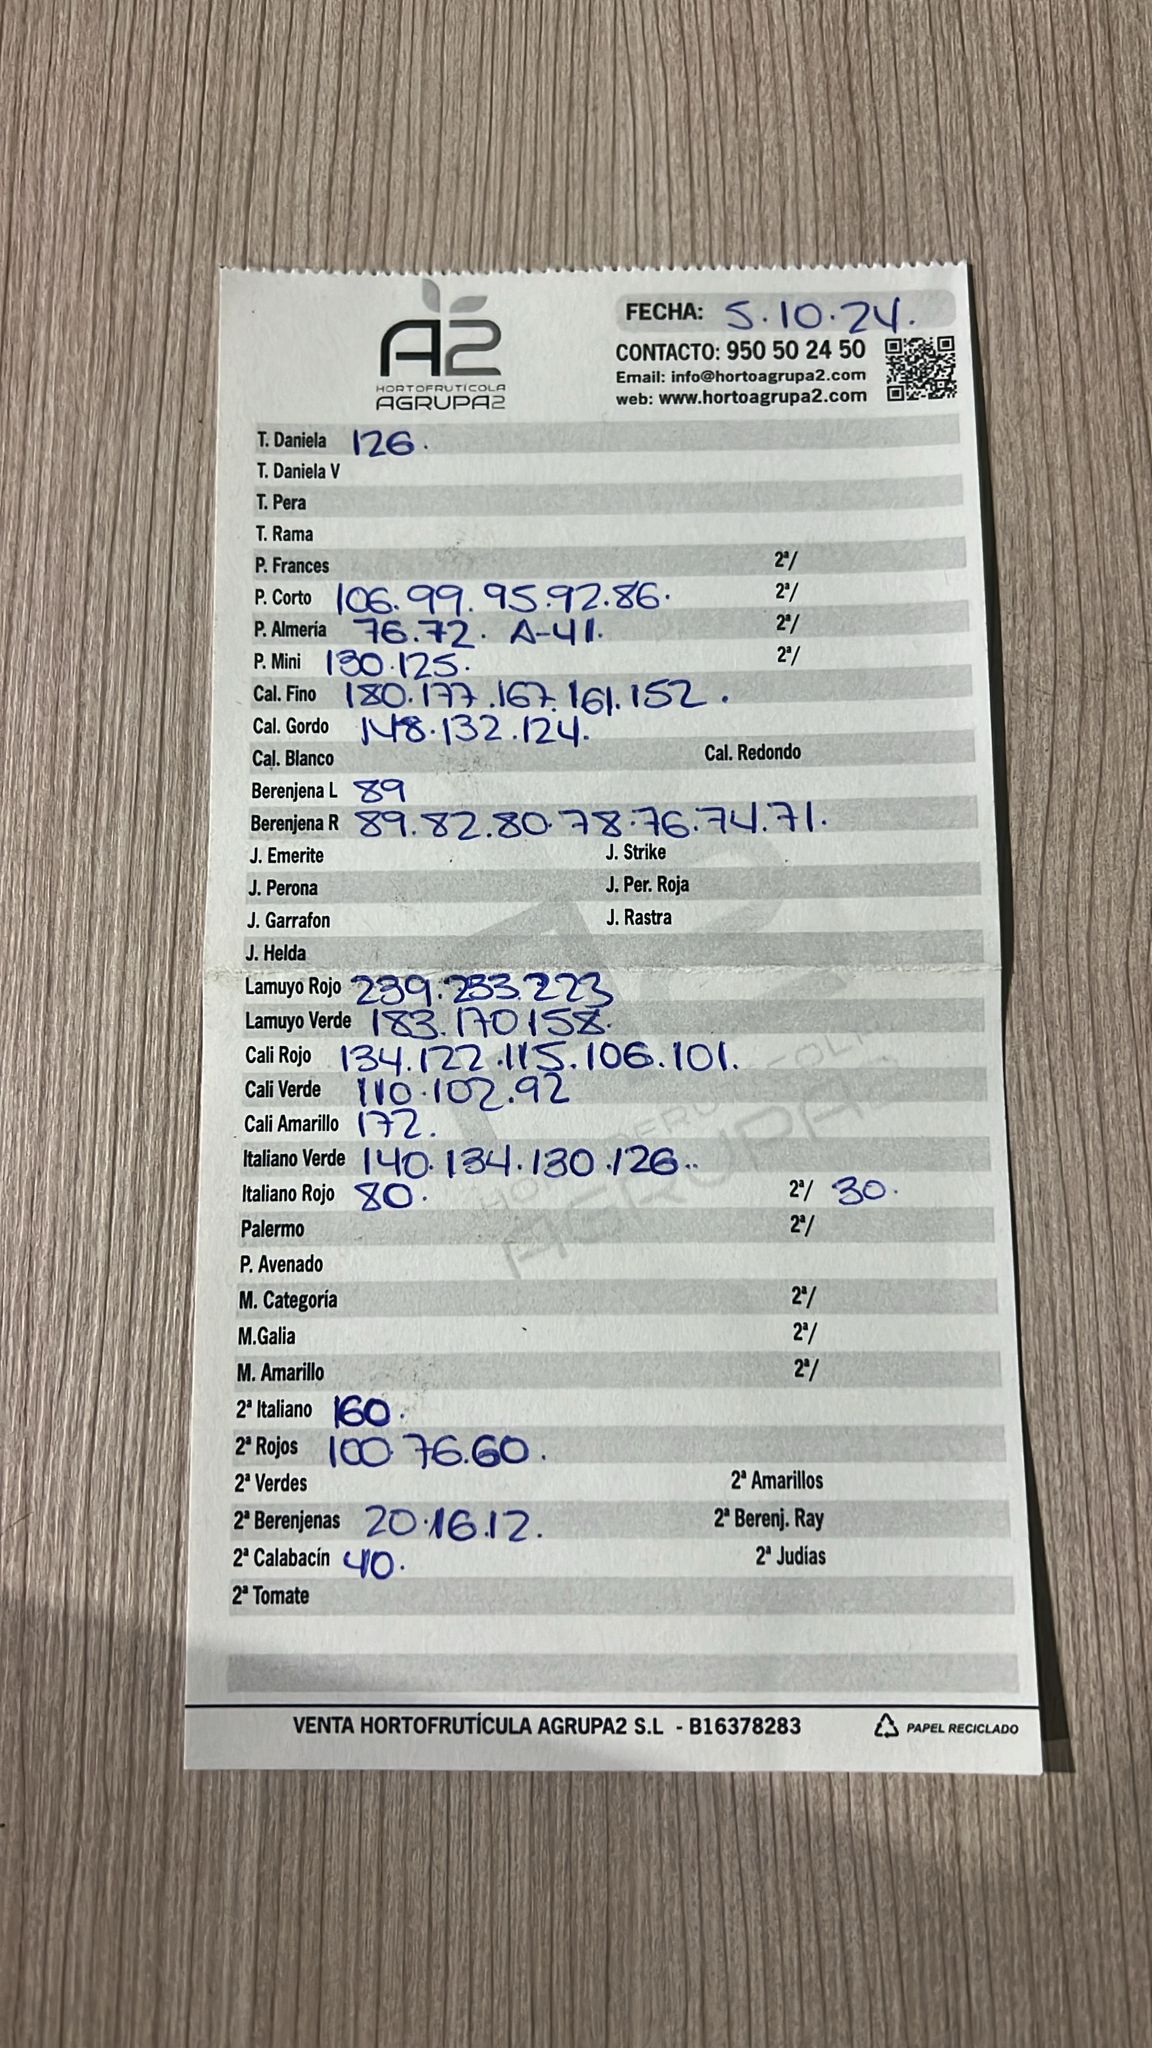 A2
HORTOFRUTÍCOLA
AGRUPA2
FECHA: 5.10.24.
CONTACTO: 950 50 24 50
Email: info@hortoagrupa2.com
web: www.hortoagrupa2.com
T. Daniela 126.
T. Daniela V
T. Pera
T. Rama
P. Frances 2ª/
P. Corto 106.99.95.92.86. 2ª/
P. Almería 76.72. A-41. 2ª/
P. Mini 130.125. 2ª/
Cal. Fino 180.177.167.161.152.
Cal. Gordo 148.132.124.
Cal. Blanco Cal. Redondo
Berenjena L 89
Berenjena R 89.82.80.78.76.74.71.
J. Emerite J. Strike
J. Perona J. Per. Roja
J. Garrafon J. Rastra
J. Helda
Lamuyo Rojo 239.233.223
Lamuyo Verde 183.170.158.
Cali Rojo 134.122.115.106.101.
Cali Verde 110.102.92
Cali Amarillo 172.
Italiano Verde 140.134.130.126..
Italiano Rojo 80. 2ª/ 30.
Palermo 2ª/
P. Avenado
M. Categoría 2ª/
M.Galia 2ª/
M. Amarillo 2ª/
2ª Italiano 160.
2ª Rojos 100.76.60.
2ª Verdes 2ª Amarillos
2ª Berenjenas 20.16.12. 2ª Berenj. Ray
2ª Calabacín 40. 2ª Judías
2ª Tomate
VENTA HORTOFRUTÍCULA AGRUPA2 S.L - B16378283 PAPEL RECICLADO